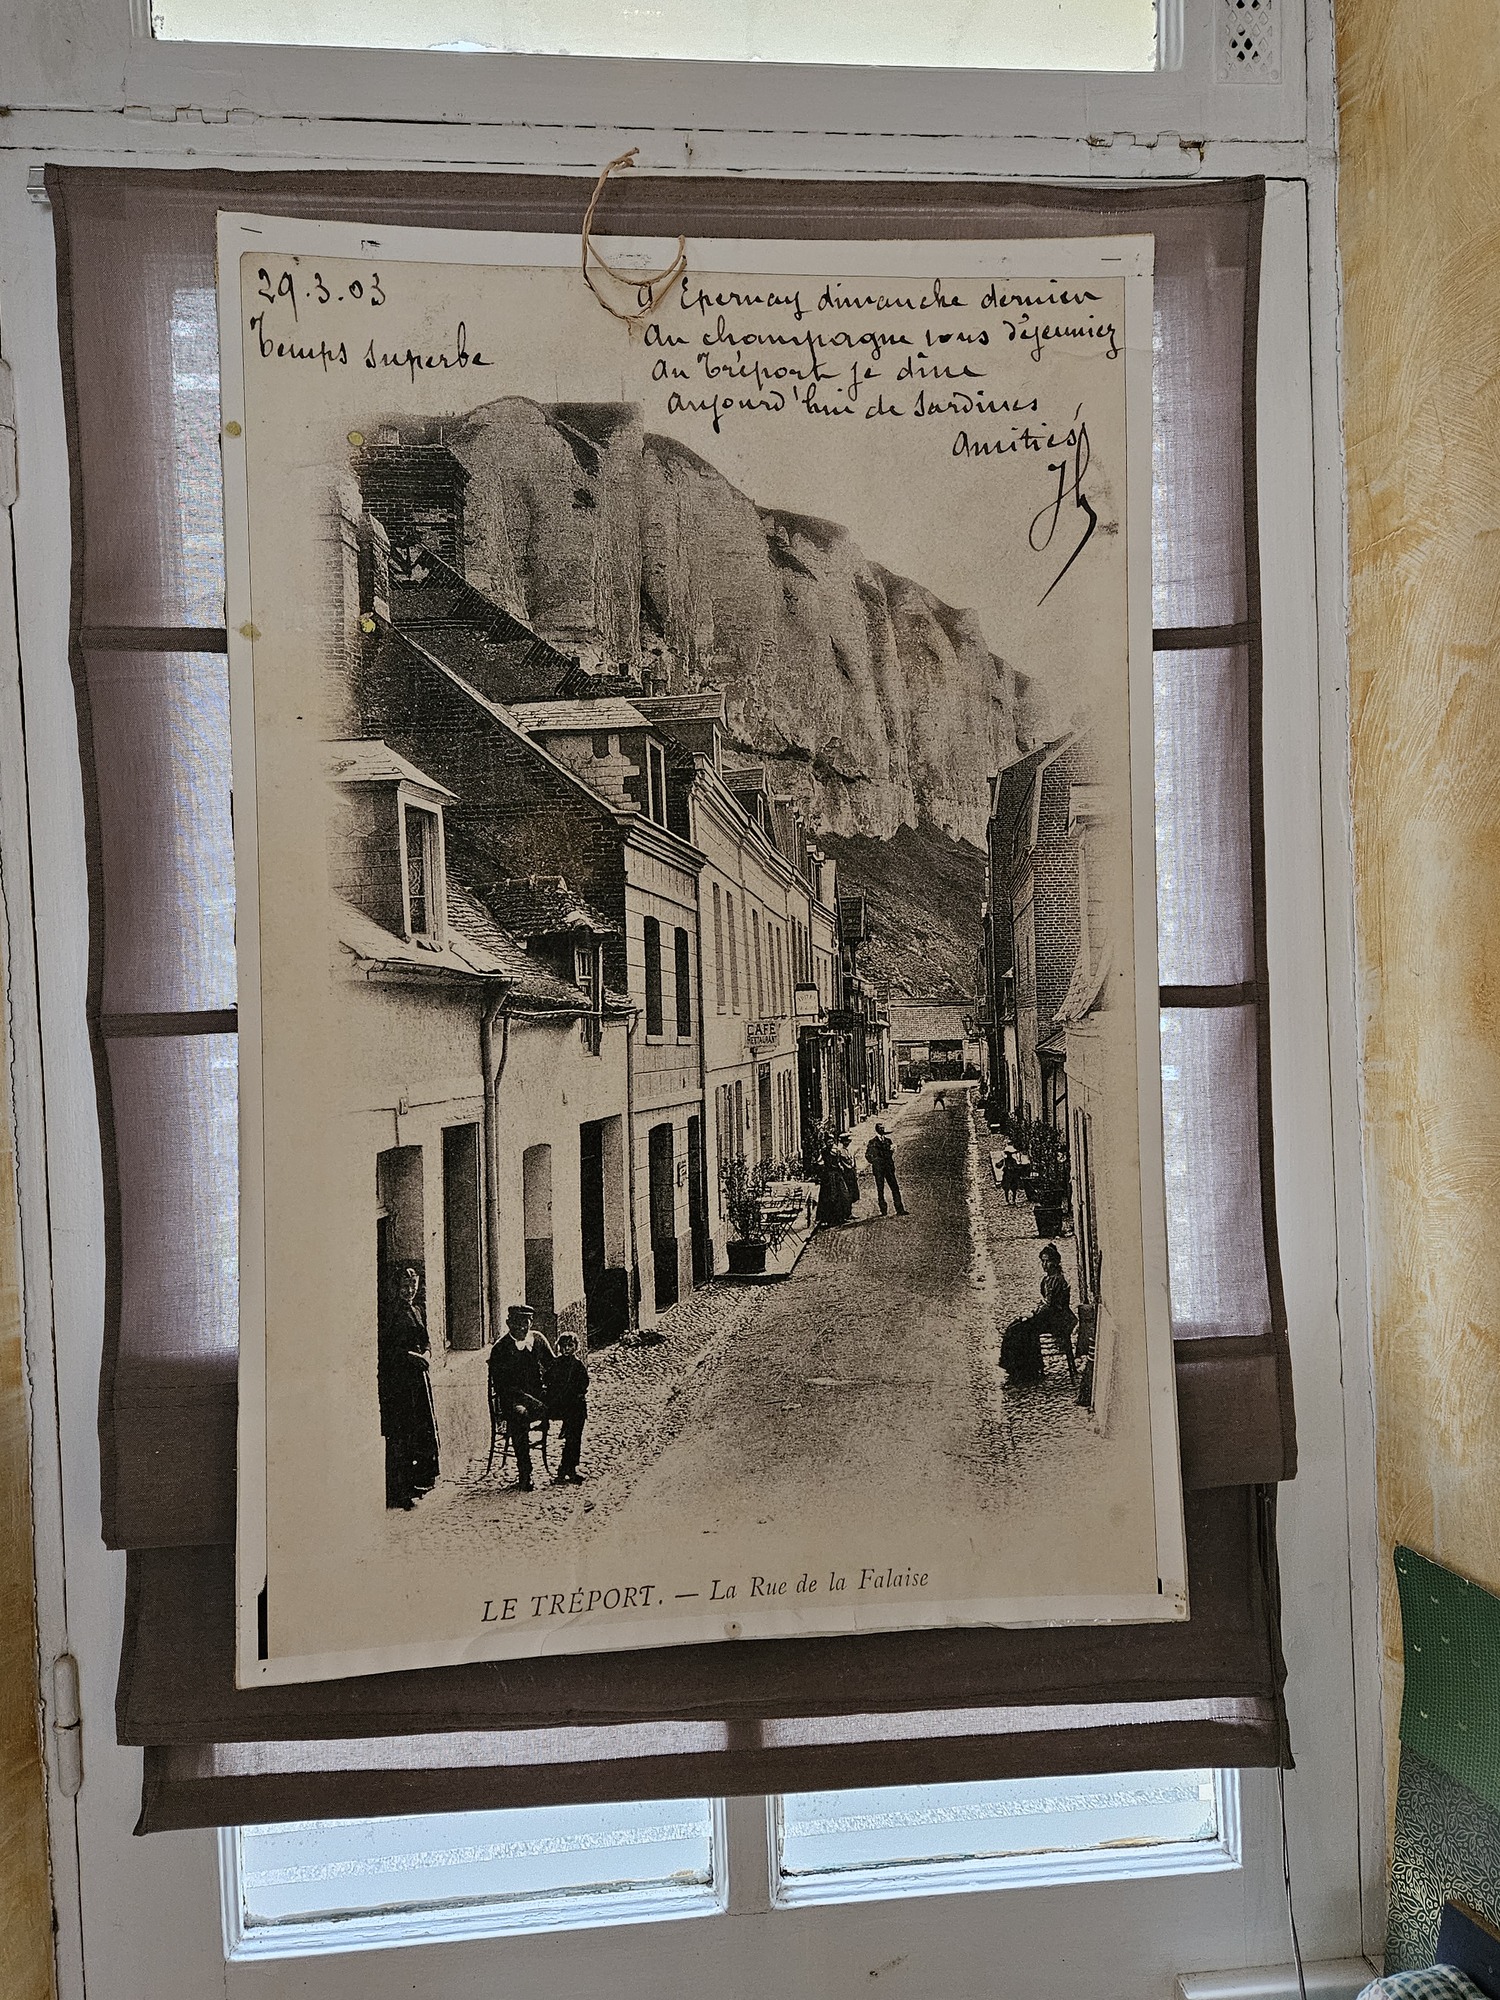 29.3.03
Temps superbe
A Epernay dimanche dernier
Au champagne vous déjeuniez
Au Tréport je dîne
Aujourd'hui de Sardines
Amitiés
CAFÉ
RESTAURANT
LE TRÉPORT. — La Rue de la Falaise